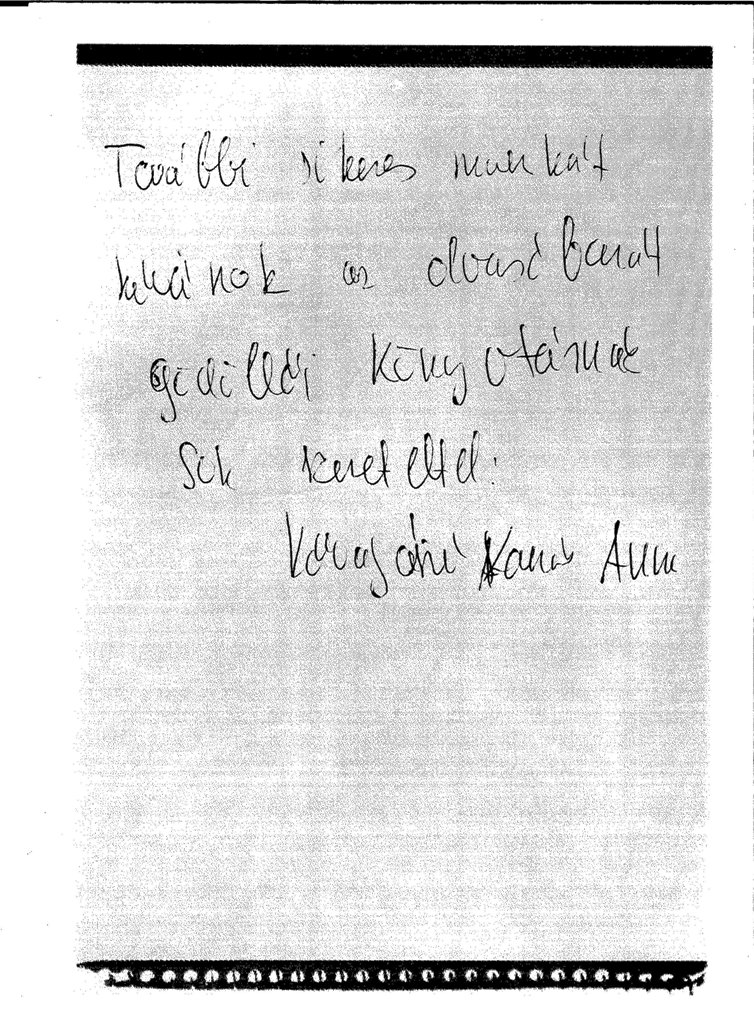 További sikeres munkát
kívánok az olvasóbarát
gödöllői könyvtárnak
Sok szeretettel:
Anna